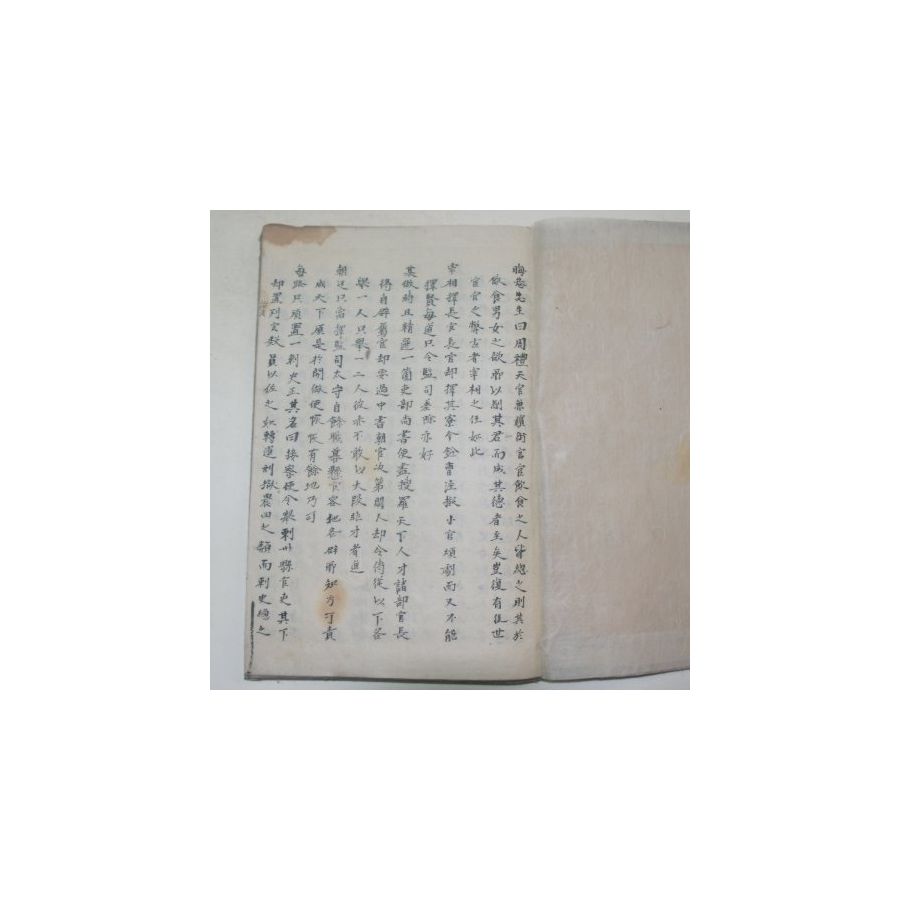 晦菴先生曰周禮天官兼嬪御宦官飮食之人皆總之則其於
飮食男女之欲所以制其君而成其德者至矣豈復有後世
宦官之弊古者宰相之任如此
宰相擇長官長官却擇其寮今銓曹注擬小官煩劇而又不能
擇賢每道只令監司差除亦好
某做時且精選一箇吏部尙書使盡搜羅天下人才諸部官長
得自辟屬官却要過中書朝官次第闕人却令侍從以下各
擧一人只擧一二人彼亦不敢以大段非才者進
朝廷只當擇監司太守自餘職幕縣官容他各辟所知方可責
成天下原是於閑做使恢恢有餘地乃可
每路只須置一刺史正其名曰按察使令察刺州縣官吏其下
却置判官數員以佐之如轉運刑獄農田之類而刺史總之